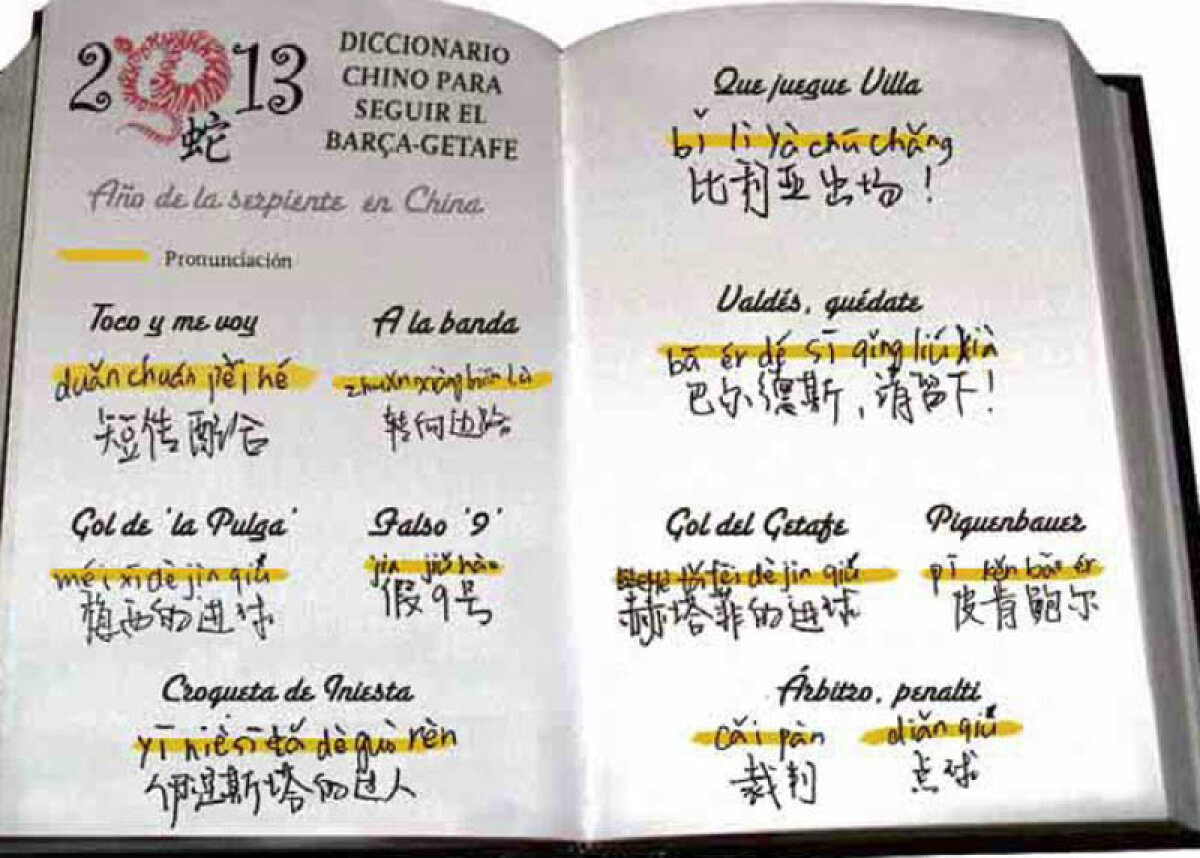 2013
蛇
DICCIONARIO
CHINO PARA
SEGUIR EL
BARÇA-GETAFE
Año de la serpiente en China
Pronunciación
Toco y me voy
duǎn chuán pèi hé
短传配合
A la banda
转向边路
Gol de 'la Pulga'
méi xī dè jìn qiú
梅西的进球
Falso '9'
jiǎ jiǔ hào
假9号
Croqueta de Iniesta
yī niè sī tǎ dè guò rèn
伊涅斯塔的过人
Que juegue Villa
bǐ lì yà chū chǎng
比利亚出场！
Valdés, quédate
bā ěr dé sī qǐng liú xià
巴尔德斯，请留下！
Gol del Getafe
tǎ fēi dè jìn qiú
赫塔菲的进球
Piquenbauer
pí kěn bào ěr
皮肯鲍尔
Árbitro, penalti
cǎi pàn diǎn qiú
裁判 点球